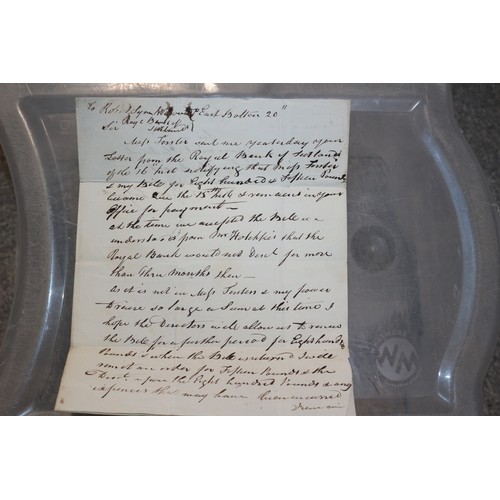 To Robt Syon East Bolton 20"
Sir Royl Bank of Scotland
Miss Forster sent me yesterday your
Letter from the Royal Bank of Scotland
of the 16 Inst notifying that Miss Forster
& my Bill for Eight hundred & Fifteen Pounds
became due the 15th Inst & remains in your
Office for payment —
at the time we accepted the Bill we
understood from Mr Hotchkis that the
Royal Bank would not Disct for more
than three months then —
as it is not in Miss Forsters & my power
to raise so large a Sum at this time I
hope the Directors will allow us to renew
the Bill for a further period for Eight hund
Pounds & when the Bill is returned I will
remit an order for Fifteen Pounds & the
Disct upon the Eight hundred Pounds & any
expences the may have been incurred
I remain